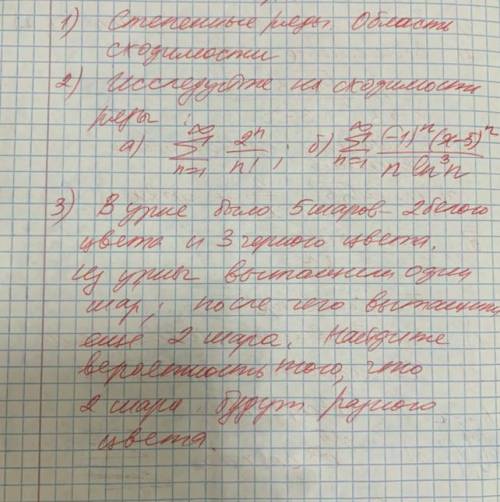 1) Степенные ряды. Область
сходимости
2) Исследуйте на сходимость
ряды:
а) ∞ ∑ n=1 2^n / n! , б) ∞ ∑ n=1 (-1)^n (x-5)^n / n ln^3 n
3) В урне было 5 шаров - 2 белого
цвета и 3 черного цвета.
Из урны вытащили один
шар, после чего вытащили
ещё 2 шара. Найдите
вероятность того, что
2 шара будут разного
цвета.